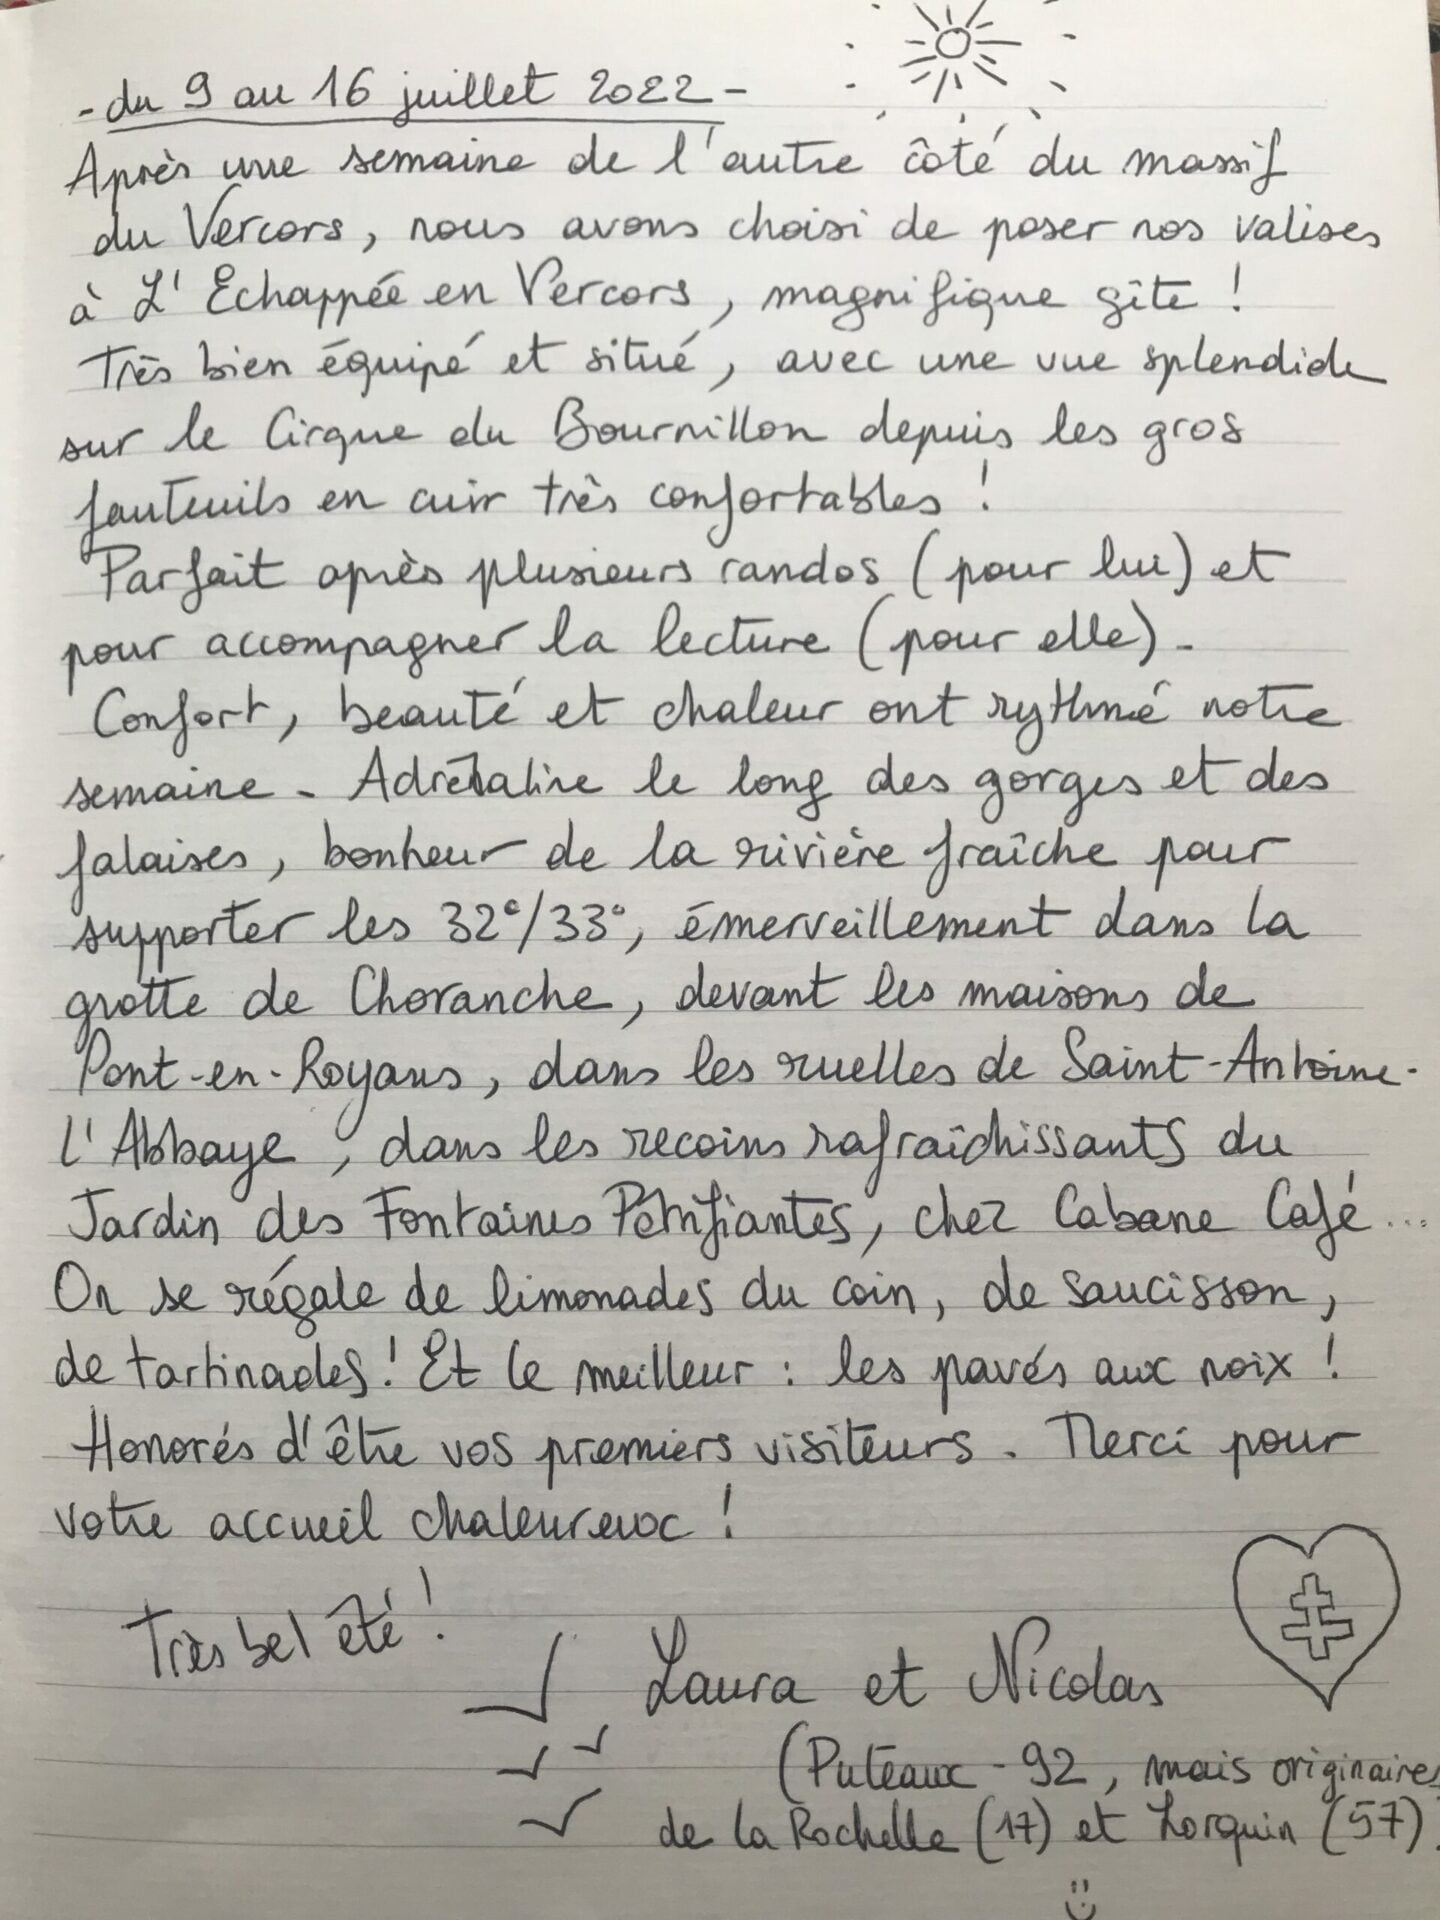 - du 9 au 16 juillet 2022 -
Après une semaine de l'autre côté du massif
du Vercors, nous avons choisi de poser nos valises
à L'Echappée en Vercors, magnifique gîte !
Très bien équipé et situé, avec une vue splendide
sur le Cirque du Bournillon depuis les gros
fauteuils en cuir très confortables !
Parfait après plusieurs randos (pour lui) et
pour accompagner la lecture (pour elle).
Confort, beauté et chaleur ont rythmé notre
semaine. Adrénaline le long des gorges et des
falaises, bonheur de la rivière fraîche pour
supporter les 32°/33°, émerveillement dans la
grotte de Choranche, devant les maisons de
Pont-en-Royans, dans les ruelles de Saint-Antoine-
l'Abbaye, dans les recoins rafraîchissants du
Jardin des Fontaines Pétrifiantes, chez Cabane Café...
On se régale de limonades du coin, de saucisson,
de tartinades ! Et le meilleur : les pavés aux noix !
Honorés d'être vos premiers visiteurs. Merci pour
votre accueil chaleureux !
Très bel été !
Laura et Nicolas
(Puteaux - 92, mais originaires
de la Rochelle (17) et Lorquin (57)